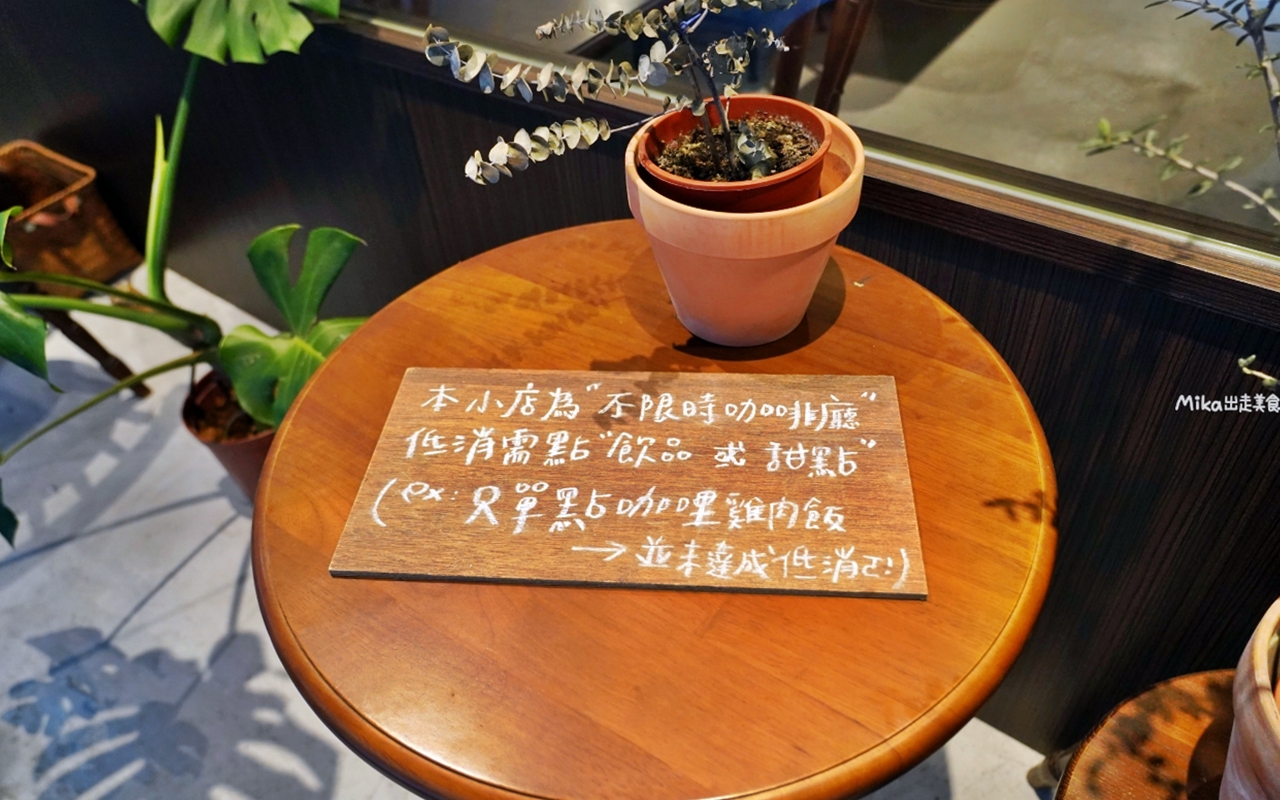 本小店為"不限時咖啡廳"
低消需點"飲品 或 甜點"
(ex: 只單點咖哩雞肉飯
→並未達成低消ㄛ!)
Mika出走美食